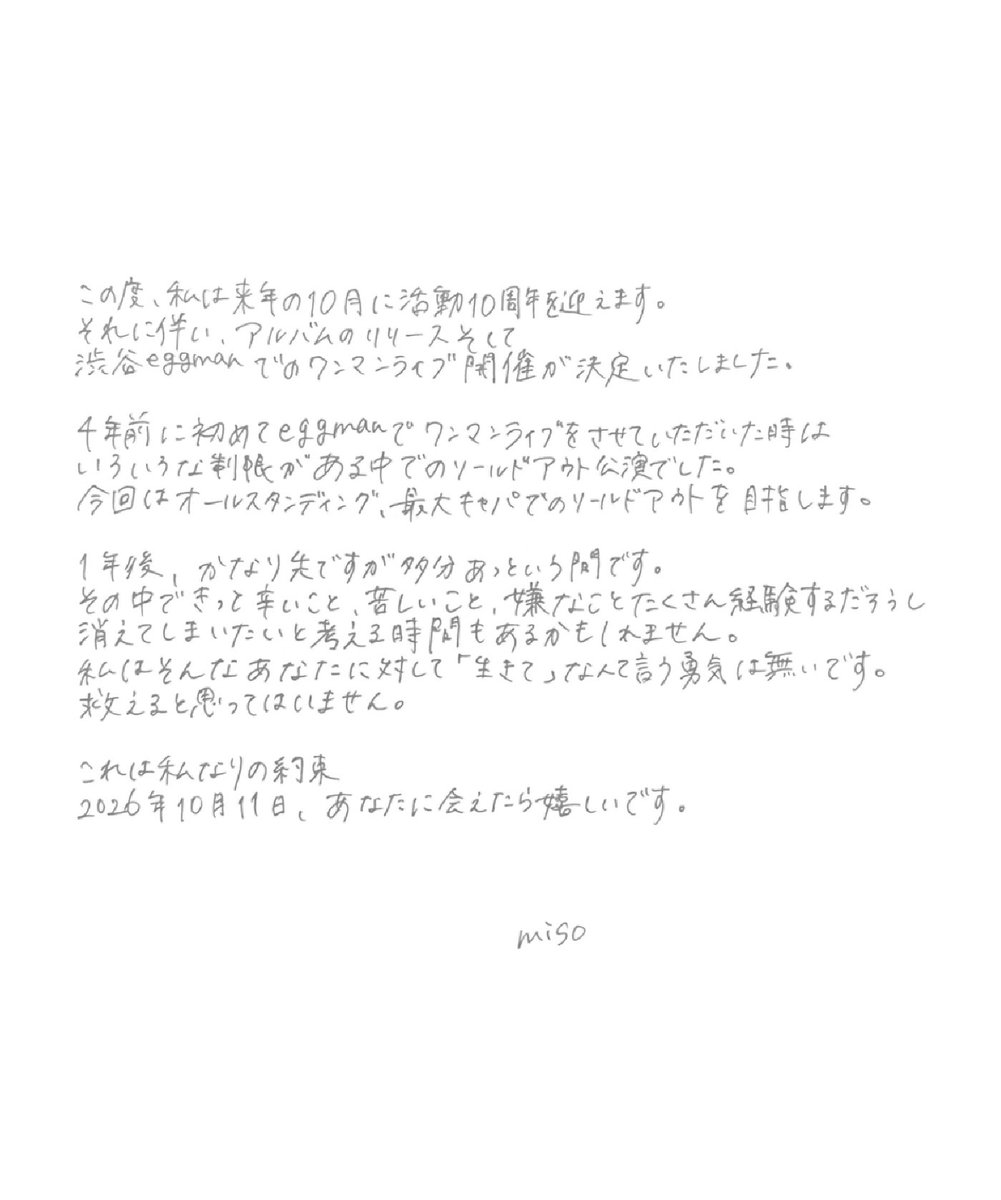 この度、私は来年の10月に活動10周年を迎えます。
それに伴い、アルバムのリリースそして
渋谷eggmanでのワンマンライブ開催が決定いたしました。
4年前に初めてeggmanでワンマンライブをさせていただいた時は
いろいろな制限がある中でのソールドアウト公演でした。
今回はオールスタンディング、最大キャパでのソールドアウトを目指します。
1年後、かなり先ですが多分あっという間です。
その中できっと辛いこと、苦しいこと、嫌なことたくさん経験するだろうし
消えてしまいたいと考える時間もあるかもしれません。
私はそんなあなたに対して「生きて」なんて言う勇気は無いです。
救えると思ってはいません。
これは私なりの約束
2026年10月11日、あなたに会えたら嬉しいです。
miso